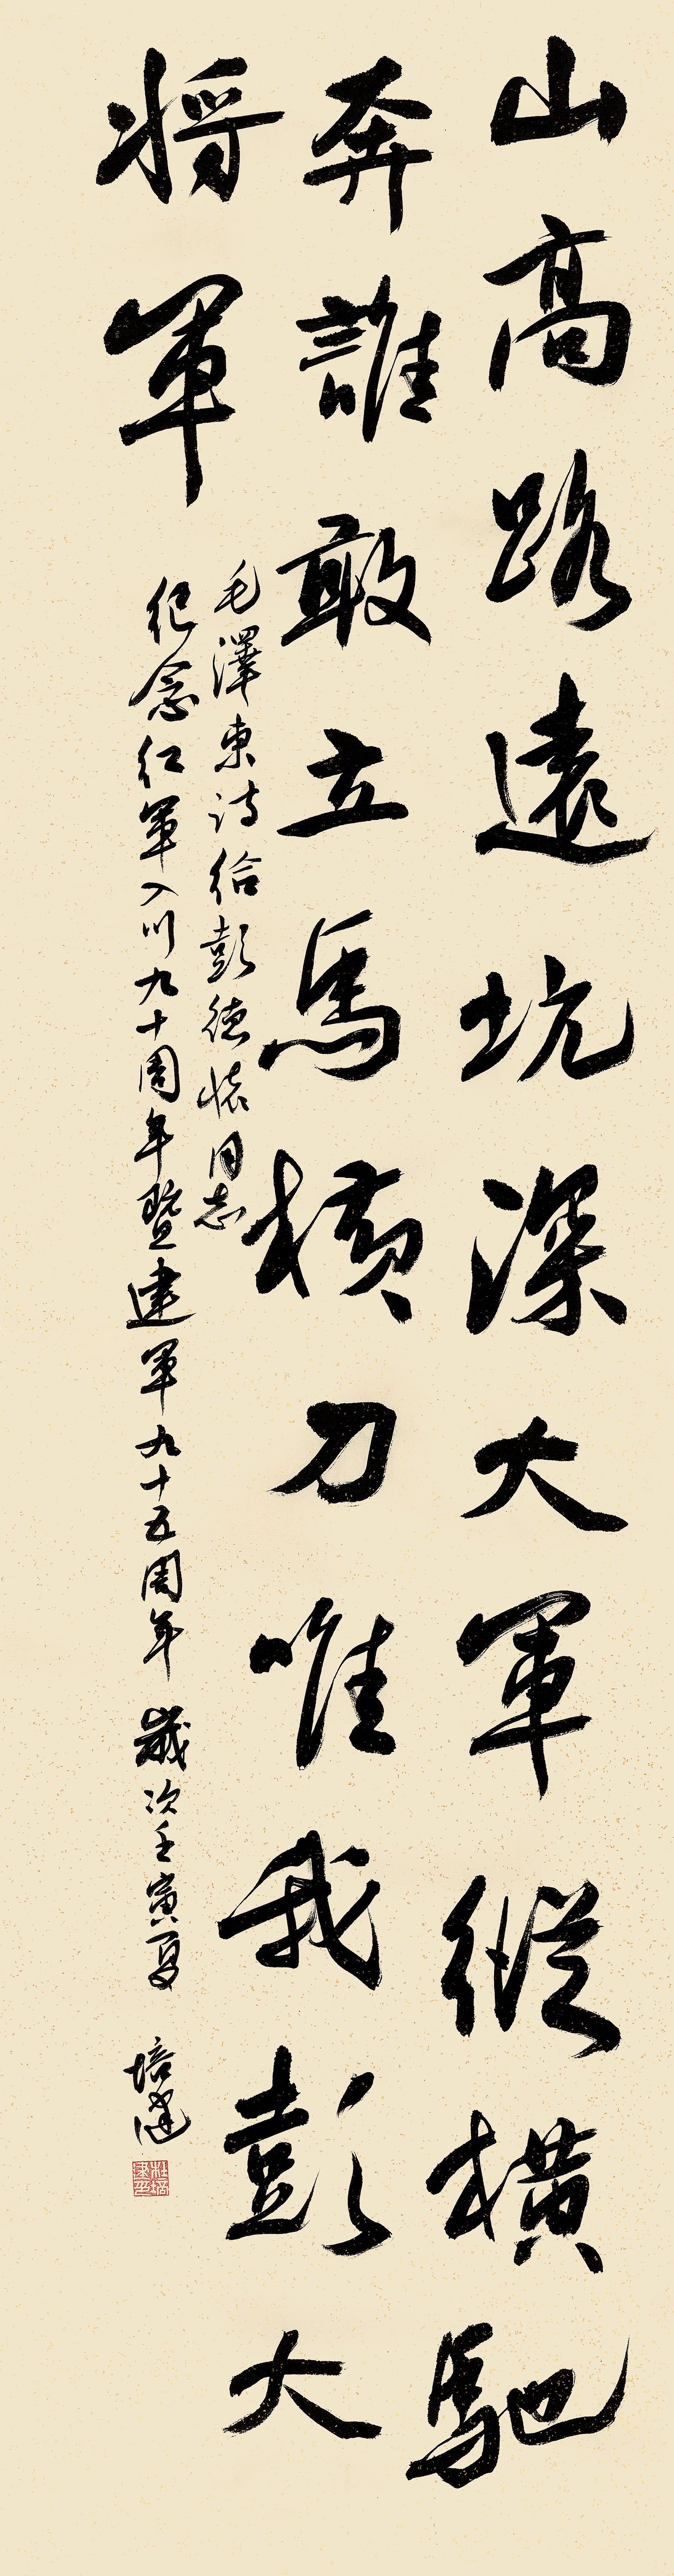 山高路遠坑深大軍縱橫馳
奔誰敢立馬橫刀唯我彭大
将軍
毛澤東詩给彭德懷同志
纪念红軍入川九十周年暨建軍九十五周年 歲次壬寅夏 培建
杜培建印